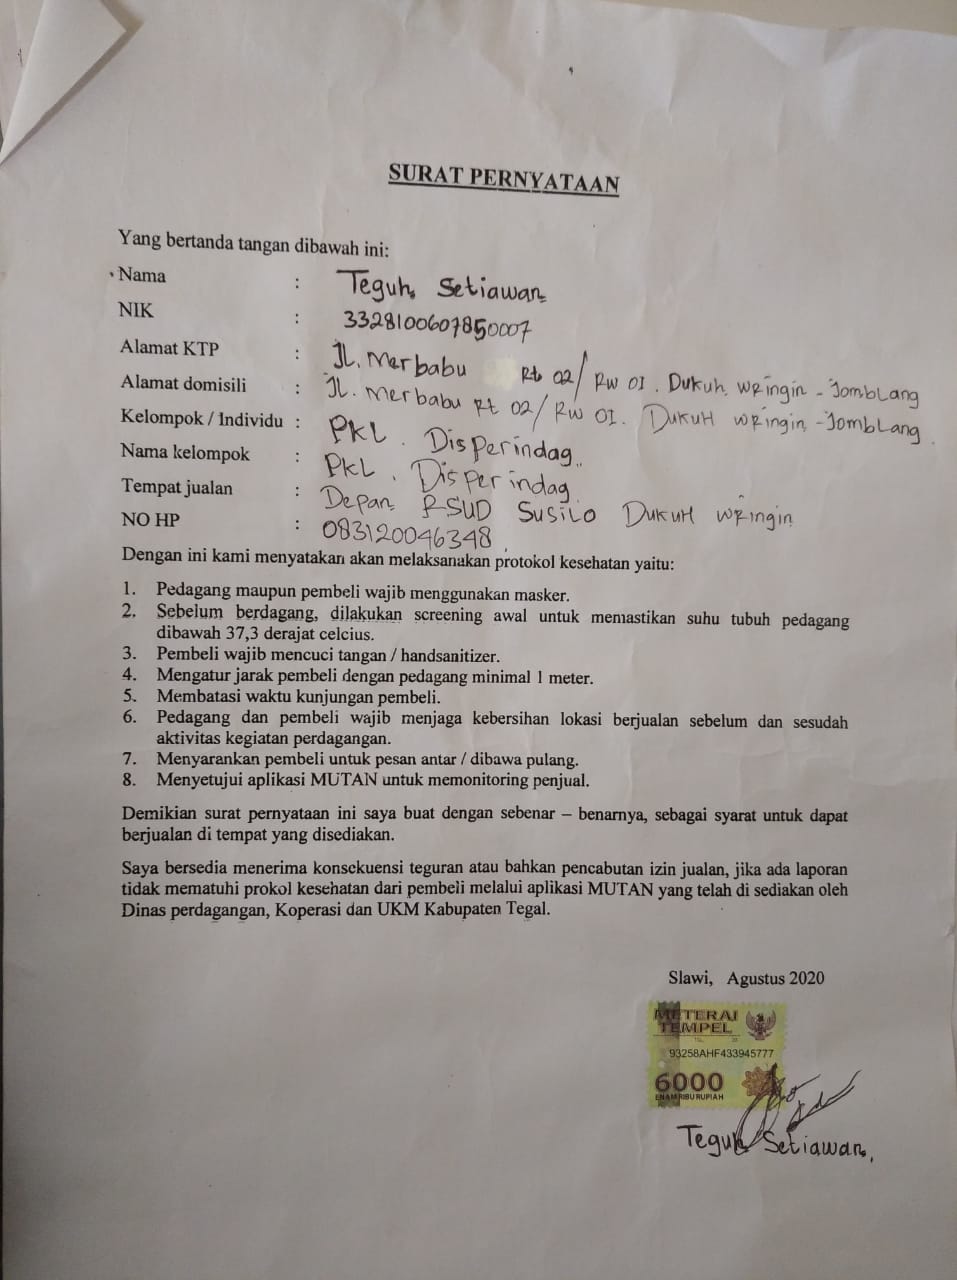 SURAT PERNYATAAN
Yang bertanda tangan dibawah ini:
Nama : Teguh Setiawan
NIK : 3328100607850007
Alamat KTP : JL. Merbabu Rt 02/ RW 01. Dukuh wringin - Jomblang
Alamat domisili : JL. Merbabu Rt 02/ RW 01. DukuH wringin - Jomblang
Kelompok / Individu : PKL. Disperindag
Nama kelompok : PKL. Disperindag
Tempat jualan : Depan RSUD Susilo DukuH wringin
NO HP : 083120046348
Dengan ini kami menyatakan akan melaksanakan protokol kesehatan yaitu:
1. Pedagang maupun pembeli wajib menggunakan masker.
2. Sebelum berdagang, dilakukan screening awal untuk memastikan suhu tubuh pedagang
dibawah 37,3 derajat celcius.
3. Pembeli wajib mencuci tangan / handsanitizer.
4. Mengatur jarak pembeli dengan pedagang minimal 1 meter.
5. Membatasi waktu kunjungan pembeli.
6. Pedagang dan pembeli wajib menjaga kebersihan lokasi berjualan sebelum dan sesudah
aktivitas kegiatan perdagangan.
7. Menyarankan pembeli untuk pesan antar / dibawa pulang.
8. Menyetujui aplikasi MUTAN untuk memonitoring penjual.
Demikian surat pernyataan ini saya buat dengan sebenar – benarnya, sebagai syarat untuk dapat
berjualan di tempat yang disediakan.
Saya bersedia menerima konsekuensi teguran atau bahkan pencabutan izin jualan, jika ada laporan
tidak mematuhi prokol kesehatan dari pembeli melalui aplikasi MUTAN yang telah di sediakan oleh
Dinas perdagangan, Koperasi dan UKM Kabupaten Tegal.
Slawi, Agustus 2020
METERAI
TEMPEL
93258AHF433945777
6000
ENAM RIBU RUPIAH
Teguh Setiawan